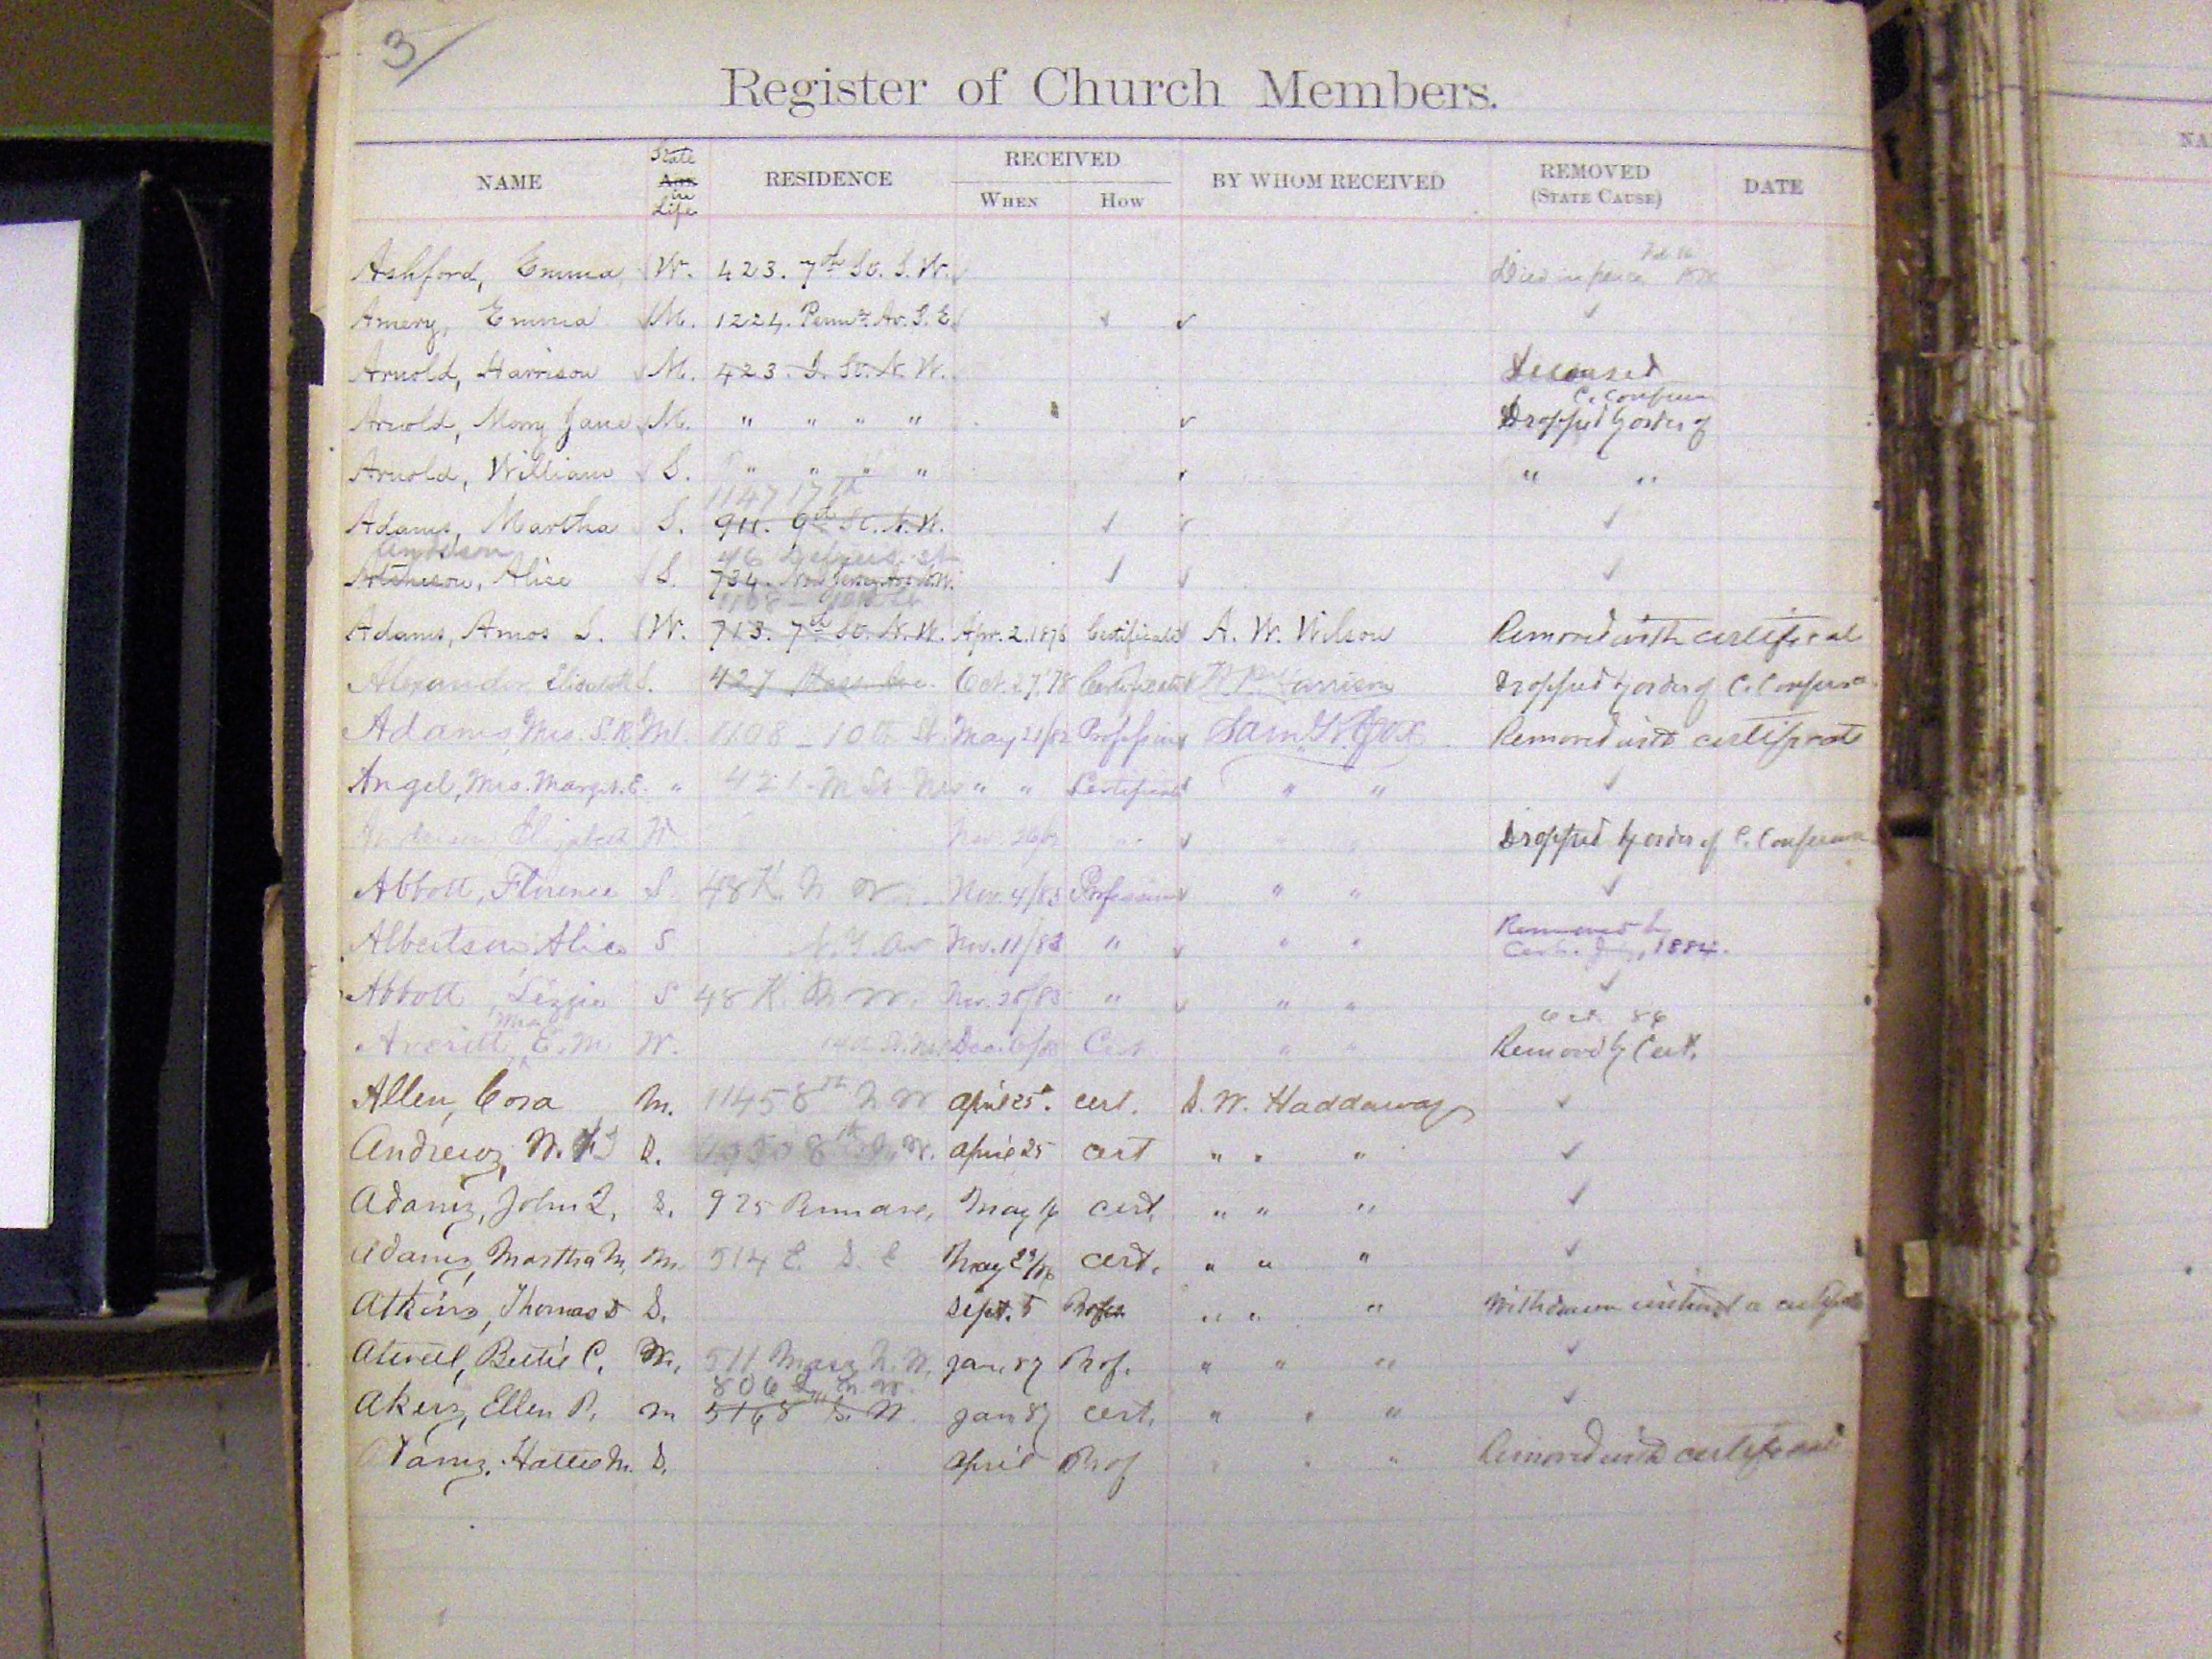 3/
Register of Church Members.
NAME State Age in Life RESIDENCE RECEIVED When How BY WHOM RECEIVED REMOVED (State Cause) DATE
Ashford, Emma W. 423. 7th St. S. W. Died in peace
Amery, Emma M. 1224. Penna. Av. S. E. ✓ ✓ ✓
Arnold, Harrison M. 423. G. St. N. W. Deceased
Arnold, Mary Jane M. " " " " ✓ Dropped by order of C. Conference
Arnold, William S. " " " " ✓ " "
1147 17th
Adams, Martha S. 911. 9th St. N. W. ✓ ✓ ✓
Anderson 46 St
Alice S. 734. New Jersey Av. N. W. ✓ ✓ ✓
1108 - 10th St
Adams, Amos S. W. 713. 7th St. N. W. Apr. 2. 1876 Certificate A. W. Wilson Removed with certificate
Alexander Elizabeth S. 427 Mass Ave. Oct. 27, '78 Certificate W. P. Harrison Dropped by order of C. Conference
Adams, Mrs. S. R. M. 1108 - 10th St. May 21/82 Profession Sam'l K. Cox Removed with certificate
Angel, Mrs. Margt. E. " 421 - M St NW " " Certificate " " ✓
Elizabeth W. Nov. ✓ " " Dropped by order of C. Conference
Abbott, Florence S. 48 K. N W. Nov. 4/83 Profession ✓ " " ✓
Albertson, Alice S N. Y. Av Nov. 11/83 " ✓ " " Removed by Cert. 1884.
Abbott, Lizzie S 48 K. N. W. Nov. 25/83 " ✓ " " ✓
Averitt, Mrs E. M W. Dec. Cert " " Oct. 86 Removed by Cert.
Allen, Cora M. 1145 8th N W April 25. cert. S. W. Haddaway ✓
Andrews, W. S. 8th N. W. April 25 cert " " " ✓
Adams, John Q. S. 925 Penn ave, May 16 cert. " " " ✓
Adams, Martha M. M. 514 E. S. E May 23/86 cert. " " " ✓
Atkins, Thomas S. Sept. 5 Profes " " " Withdrawn without a certificate
Atwell, Bettie C. M. 511 Mass N. W. Jan. 87 Prof. " " " ✓
806 N W.
Akers, Ellen P. M 516 8th N. W Jan 87 cert. " " " ✓
Adams, Hattie M. S. April Prof " " " Removed with certificate